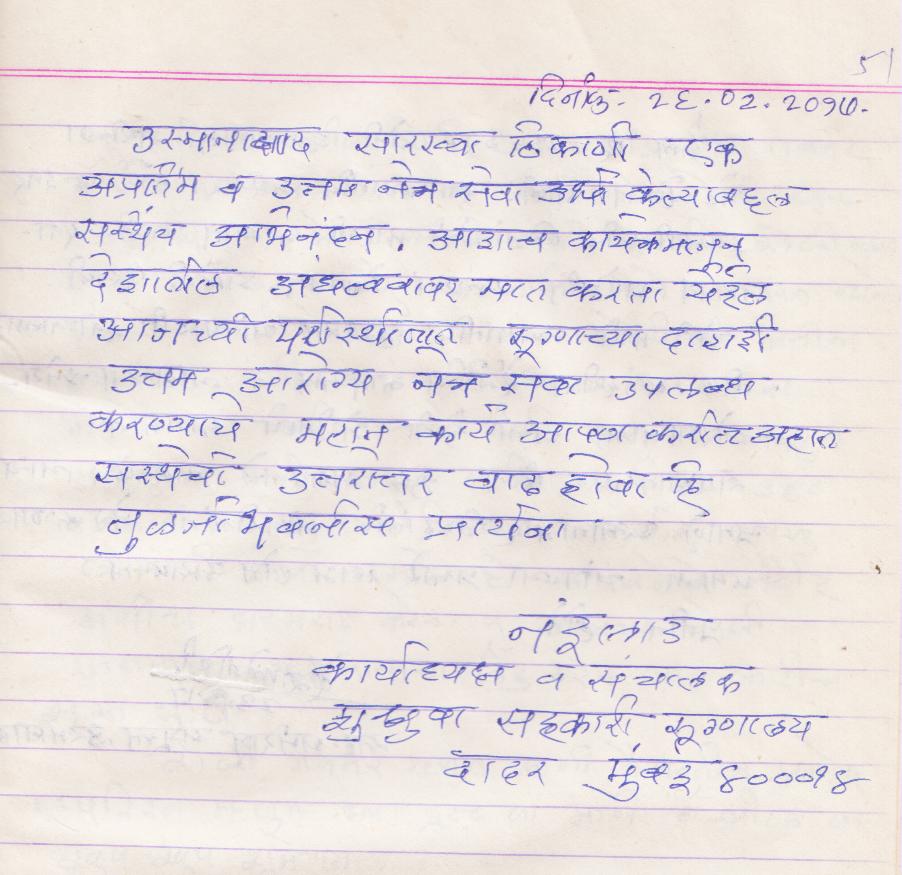 51
दिनांक- २६.०२.२०१७.
उस्मानाबाद सारख्या ठिकाणी एक
अप्रतिम व उत्तम नेत्र सेवा उभी केल्याबद्दल
संस्थेचे अभिनंदन. अशाच कार्यक्रमातून
देशातील अंधत्वावर मात करता येईल
आजच्या परिस्थीतीत रूग्णाच्या दाराशी
उत्तम आरोग्य नेत्र सेवा उपलब्ध
करण्याचे महान कार्य आपण करीत आहात
संस्थेची उत्तरोत्तर वाढ होवो हि
तुळजाभवानीस प्रार्थना
नंदू लाड
कार्याध्यक्ष व संचालक
शुश्रुषा सहकारी रूग्णालय
दादर मुंबई ४०००१४